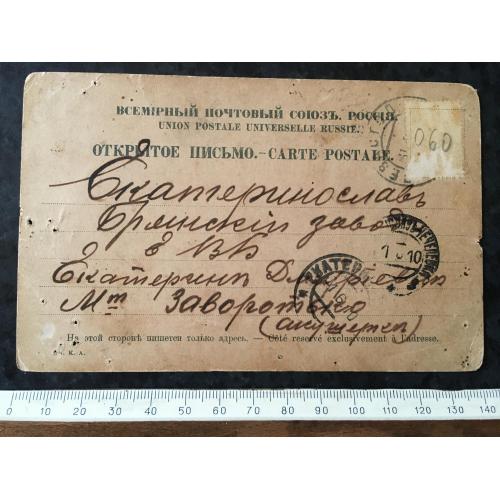 ВСЕМІРНЫЙ ПОЧТОВЫЙ СОЮЗЪ. РОССІЯ.
UNION POSTALE UNIVERSELLE RUSSIE.
ОТКРЫТОЕ ПИСЬМО.-CARTE POSTALE.
060
Екатеринославъ
Брянскій заводъ
Е ВБ
Екатеринѣ
Заворотько
(акушеркѣ)
1 10
На этой сторонѣ пишется только адресъ. — Côté réservé exclusivement à l'adresse.
К. А.
0 10 20 30 40 50 60 70 80 90 100 110 120 130 140